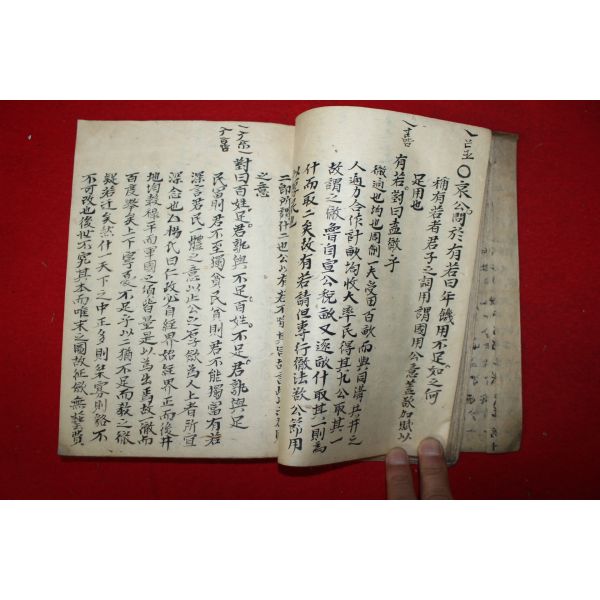 〇哀公問於有若曰年饑用不足如之何
稱有若者君子之詞用謂國用公意盖欲加賦以
足用也
有若對曰盍徹乎
徹通也均也周制一夫受田百畝而與同溝共井之
人通力合作計畝均收大率民得其九公取其一
故謂之徹魯自宣公稅畝又逐畝什取其一則爲
什而取二矣故有若請但專行徹法欲公節用
以厚民也
二即所謂什二也公以有若不喩其旨故言此以
之意
對曰百姓足君孰與不足百姓不足君孰與足
民富則君不至獨貧民貧則君不能獨富有若
深言君民一體之意以止公之厚斂爲人上者所宜
深念也楊氏曰仁政必自經界始經界正而後井
地均穀祿平而軍國之須皆量是以爲出焉故徹而
百度擧矣上下寧憂不足乎以二猶不足而敎之徹
疑若迂矣然什一天下之中正多則桀寡則貉不
不可改也後世不究其本而唯末之圖故征斂無藝費